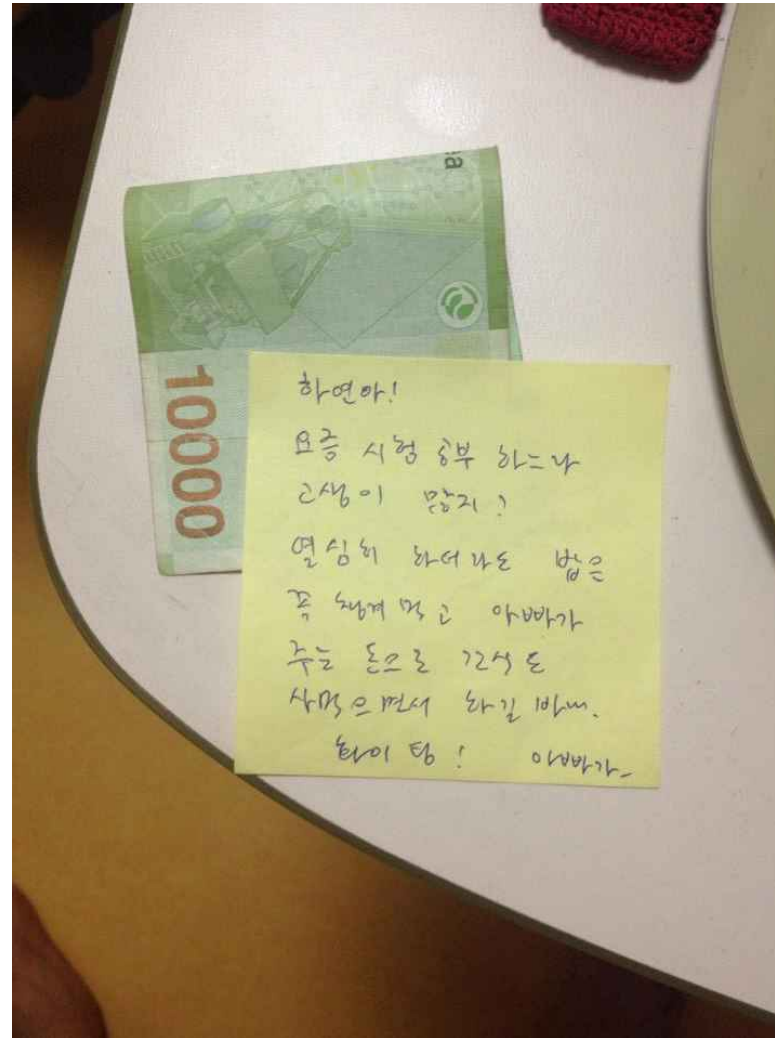 ea
10000
하연아!
요즘 시험 공부 하느라
고생이 많지?
열심히 하더라도 밥은
꼭 챙겨먹고 아빠가
주는 돈으로 간식도
사먹으면서 하길 바래.
화이팅! 아빠가-